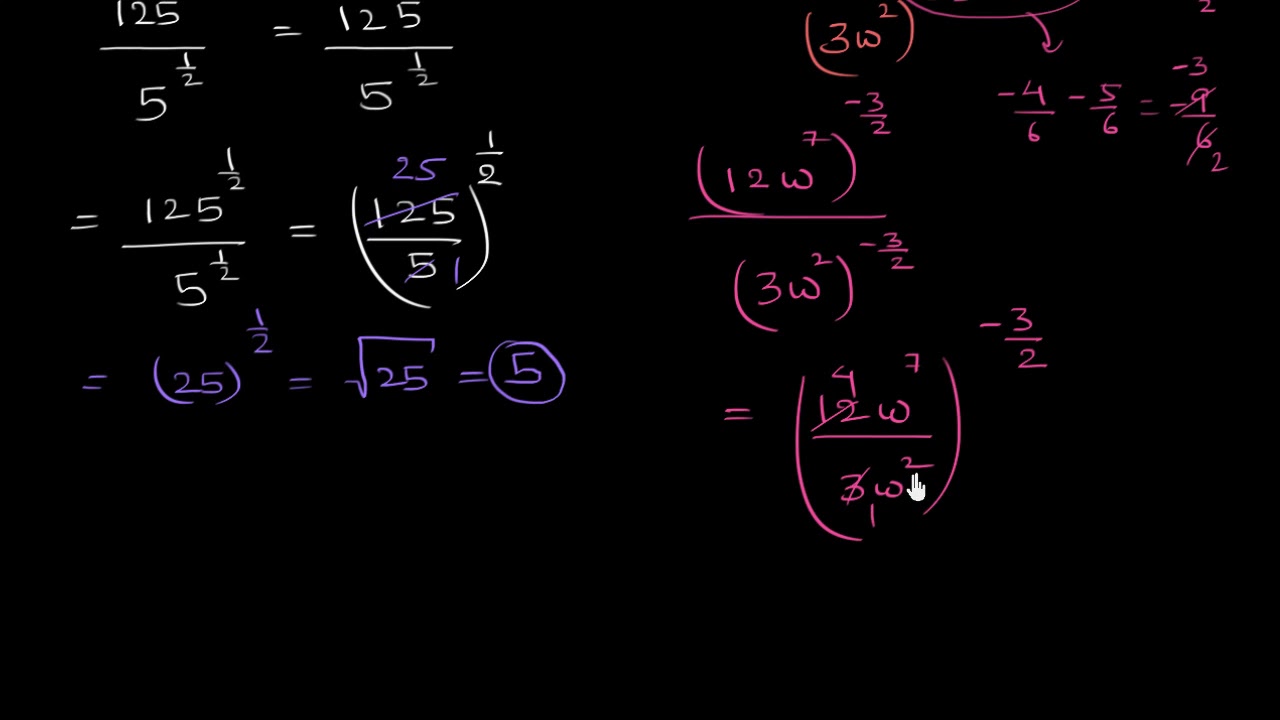 125 / 5^(1/2) = 125 / 5^(1/2)
= 125^(1/2) / 5^(1/2) = (125 / 5)^(1/2) 25 1
= (25)^(1/2) = √25 = 5
2
(3w^2)
-4/6 - 5/6 = -9/6 -3 2
(12w^7)^(-3/2) / (3w^2)^(-3/2)
= (12w^7 / 3w^2)^(-3/2) 4 1